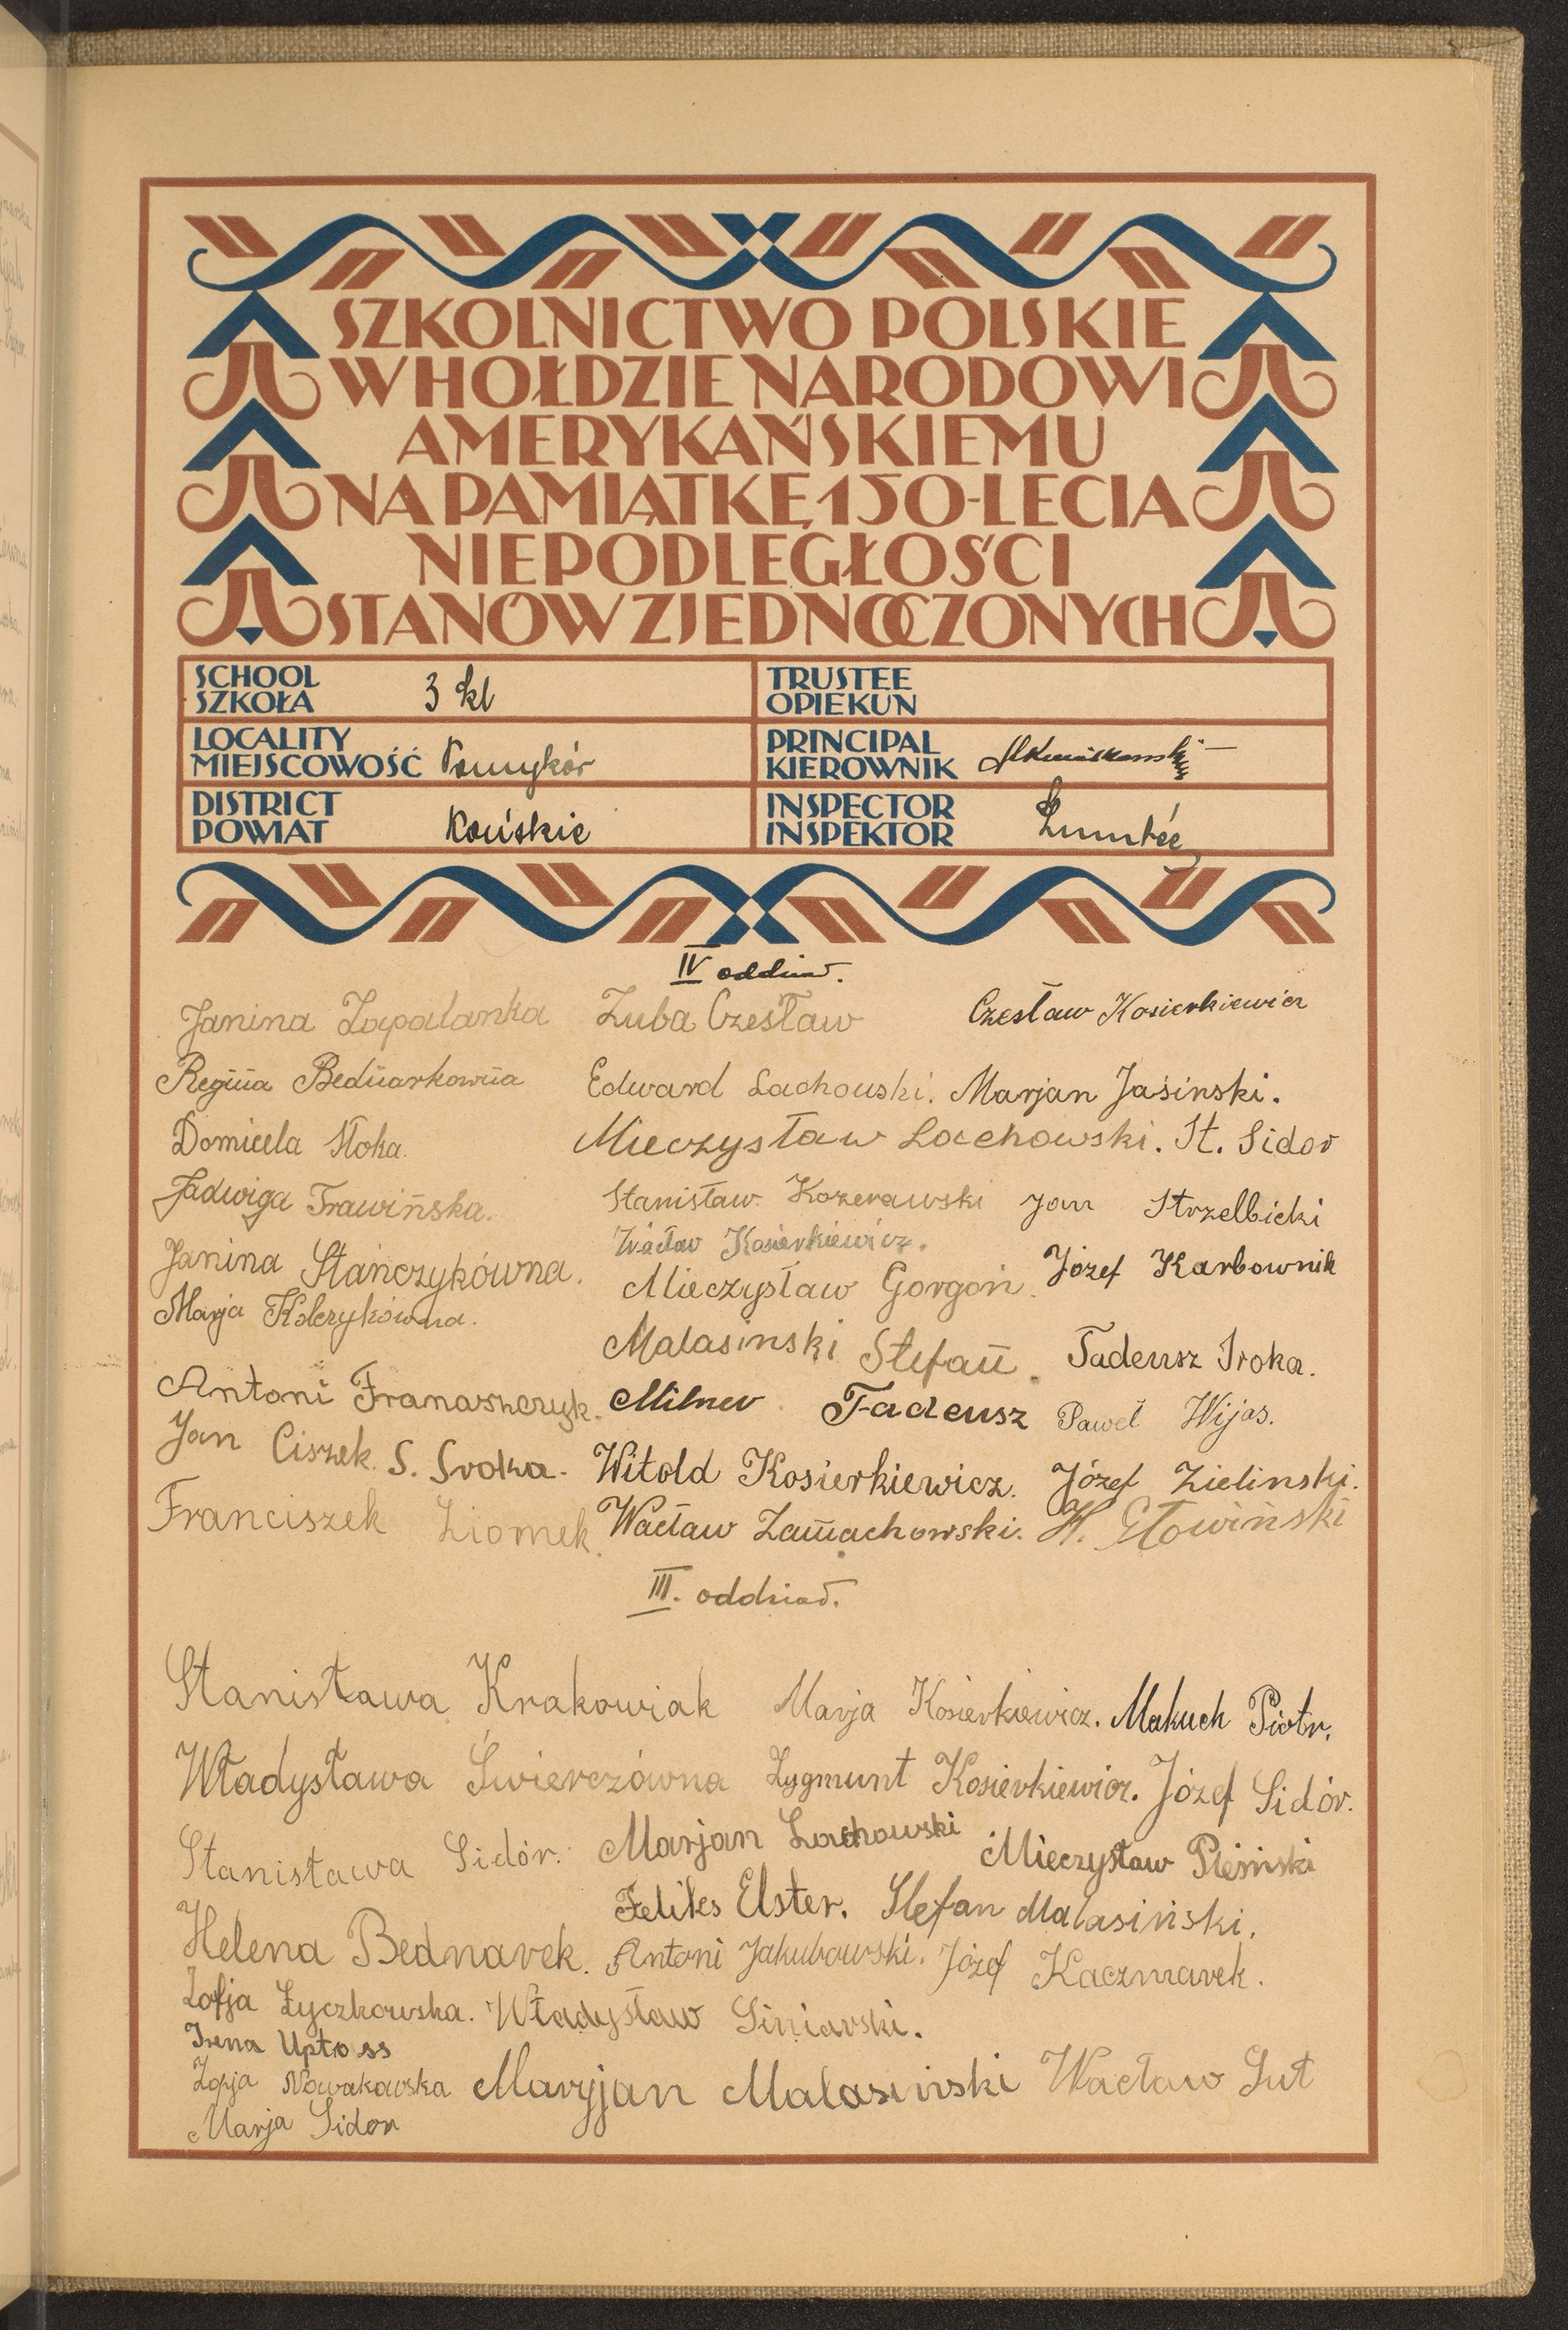 SZKOLNICTWO POLSKIE
W HOŁDZIE NARODOWI
AMERYKAŃSKIEMU
NA PAMIĄTKĘ 150-LECIA
NIEPODLEGŁOŚCI
STANÓW ZJEDNOCZONYCH
SCHOOL
SZKOŁA 3 kl
TRUSTEE
OPIEKUN
LOCALITY
MIEJSCOWOŚĆ Pomyków
PRINCIPAL
KIEROWNIK
DISTRICT
POWIAT Końskie
INSPECTOR
INSPEKTOR
IV oddział.
Janina Zapalanka Zuba Czesław Czesław Kosierkiewicz
Regina Bednarkowna Edward Lachouski. Marjan Jasinski.
Domicela Sloka. Mieczysław Lachowski. St. Sidor
Jadwiga Trawińska. Stanisław Kozerawski Jan Strzelbicki
Janina Stańczykówna. Wacław Kosierkiewicz. Józef Karbownik
Marja Kolczykówna. Mieczysław Gorgoń.
Malasinski Stefan. Tadeusz Sroka.
Antoni Franaszczyk. Milner Tadeusz Paweł Wijas.
Jan Ciszek. S. Sroka. Witold Kosierkiewicz. Józef Zielinski.
Franciszek Ziomek. Wacław Zamachowski. H. Głowiński
III. oddział.
Stanisława Krakowiak Marja Kosierkiewicz. Makuch Piotr.
Władysława Świerczówna Zygmunt Kosierkiewicz. Józef Sidór.
Stanisława Sidór. Marjan Lachowski Mieczysław
Feliks Elster. Stefan Malasiński.
Helena Bednarek. Antoni Jakubowski. Józef Kaczmarek.
Zofja Łyczkowska. Władysław Siniarski.
Irena Uptoss
Zofja Nowakowska Maryjan Malasinski Wacław Gut
Marja Sidor